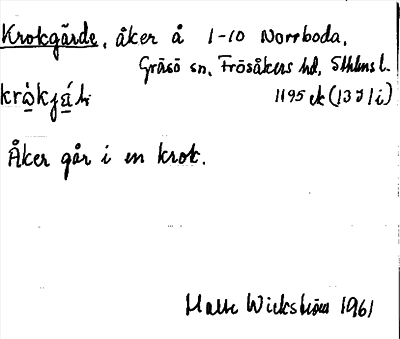 Krokgärde, åker å 1-10 Norrboda,
Gräsö sn, Frösåkers hd, Sthlms l.
1195 ek (13J1i)
Åker går i en krok.
Malte Wickström 1961